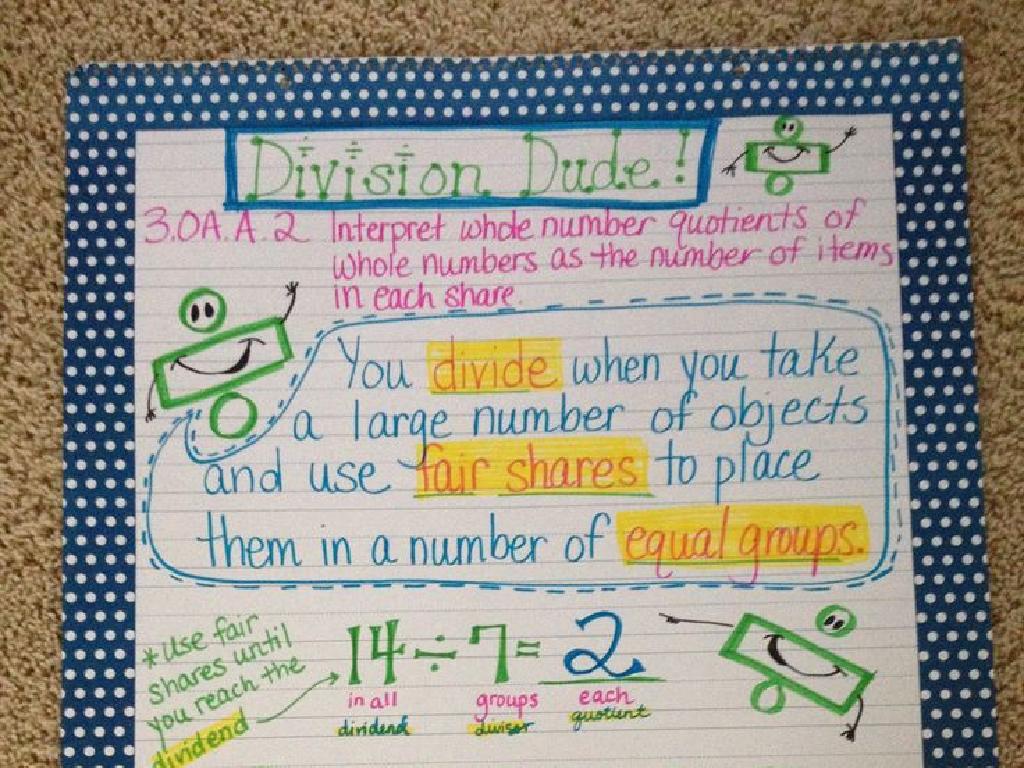 Division Dude!
3.OA.A.2 Interpret whole number quotients of
whole numbers as the number of items
in each share.
You divide when you take
a large number of objects
and use fair shares to place
them in a number of equal groups.
*Use fair
shares until
you reach the
dividend
14 ÷ 7 = 2
in all groups each
dividend divisor quotient